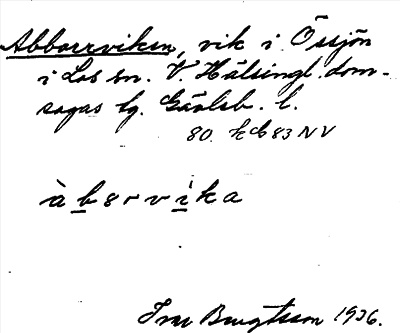 Abborrviken, vik i Össjön
i Los sn. V. Hälsingl. dom-
sagas tg. Gävleb. l.
80. k C 83 NV
àbørvika
Bengtsson 1936.